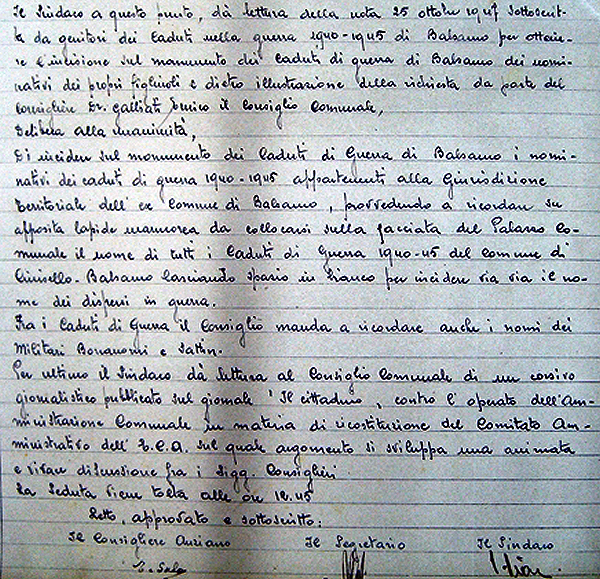 Il Sindaco a questo punto, dà lettura della nota 25 ottobre 1947 sottoscrit-
ta da genitori dei Caduti nella guerra 1940-1945 di Balsamo per ottene-
re l'incisione sul monumento dei Caduti di guerra di Balsamo dei nomi-
nativi dei propri figliuoli e dietro illustrazione della richiesta da parte del
Consigliere Dr. Galliati Enrico il Consiglio Comunale,
Delibera alla unanimità,
Di incidere sul monumento dei Caduti di Guerra di Balsamo i nomi-
nativi dei caduti di guerra 1940-1945 appartenenti alla Giurisdizione
Territoriale dell'ex Comune di Balsamo, provvedendo a ricordare su
apposita lapide marmorea da collocarsi sulla facciata del Palazzo Co-
munale il nome di tutti i Caduti di Guerra 1940-45 del Comune di
Cinisello-Balsamo lasciando spazio in bianco per incidere via via il no-
me dei dispersi in guerra.
Fra i Caduti di Guerra il Consiglio manda a ricordare anche i nomi dei
Militari Bonanomi e
Per ultimo il Sindaco dà lettura al Consiglio Comunale di un corsivo
giornalistico pubblicato sul giornale "Il cittadino, contro l'operato dell'Am-
ministrazione Comunale in materia di ricostituzione del Comitato Am-
ministrativo dell'E.C.A. sul quale argomento si sviluppa una animata
e vivace discussione fra i Sigg. Consiglieri
La Seduta viene tolta alle ore 12.45
Letto, approvato e sottoscritto:
Il Consigliere Anziano Il Segretario Il Sindaco